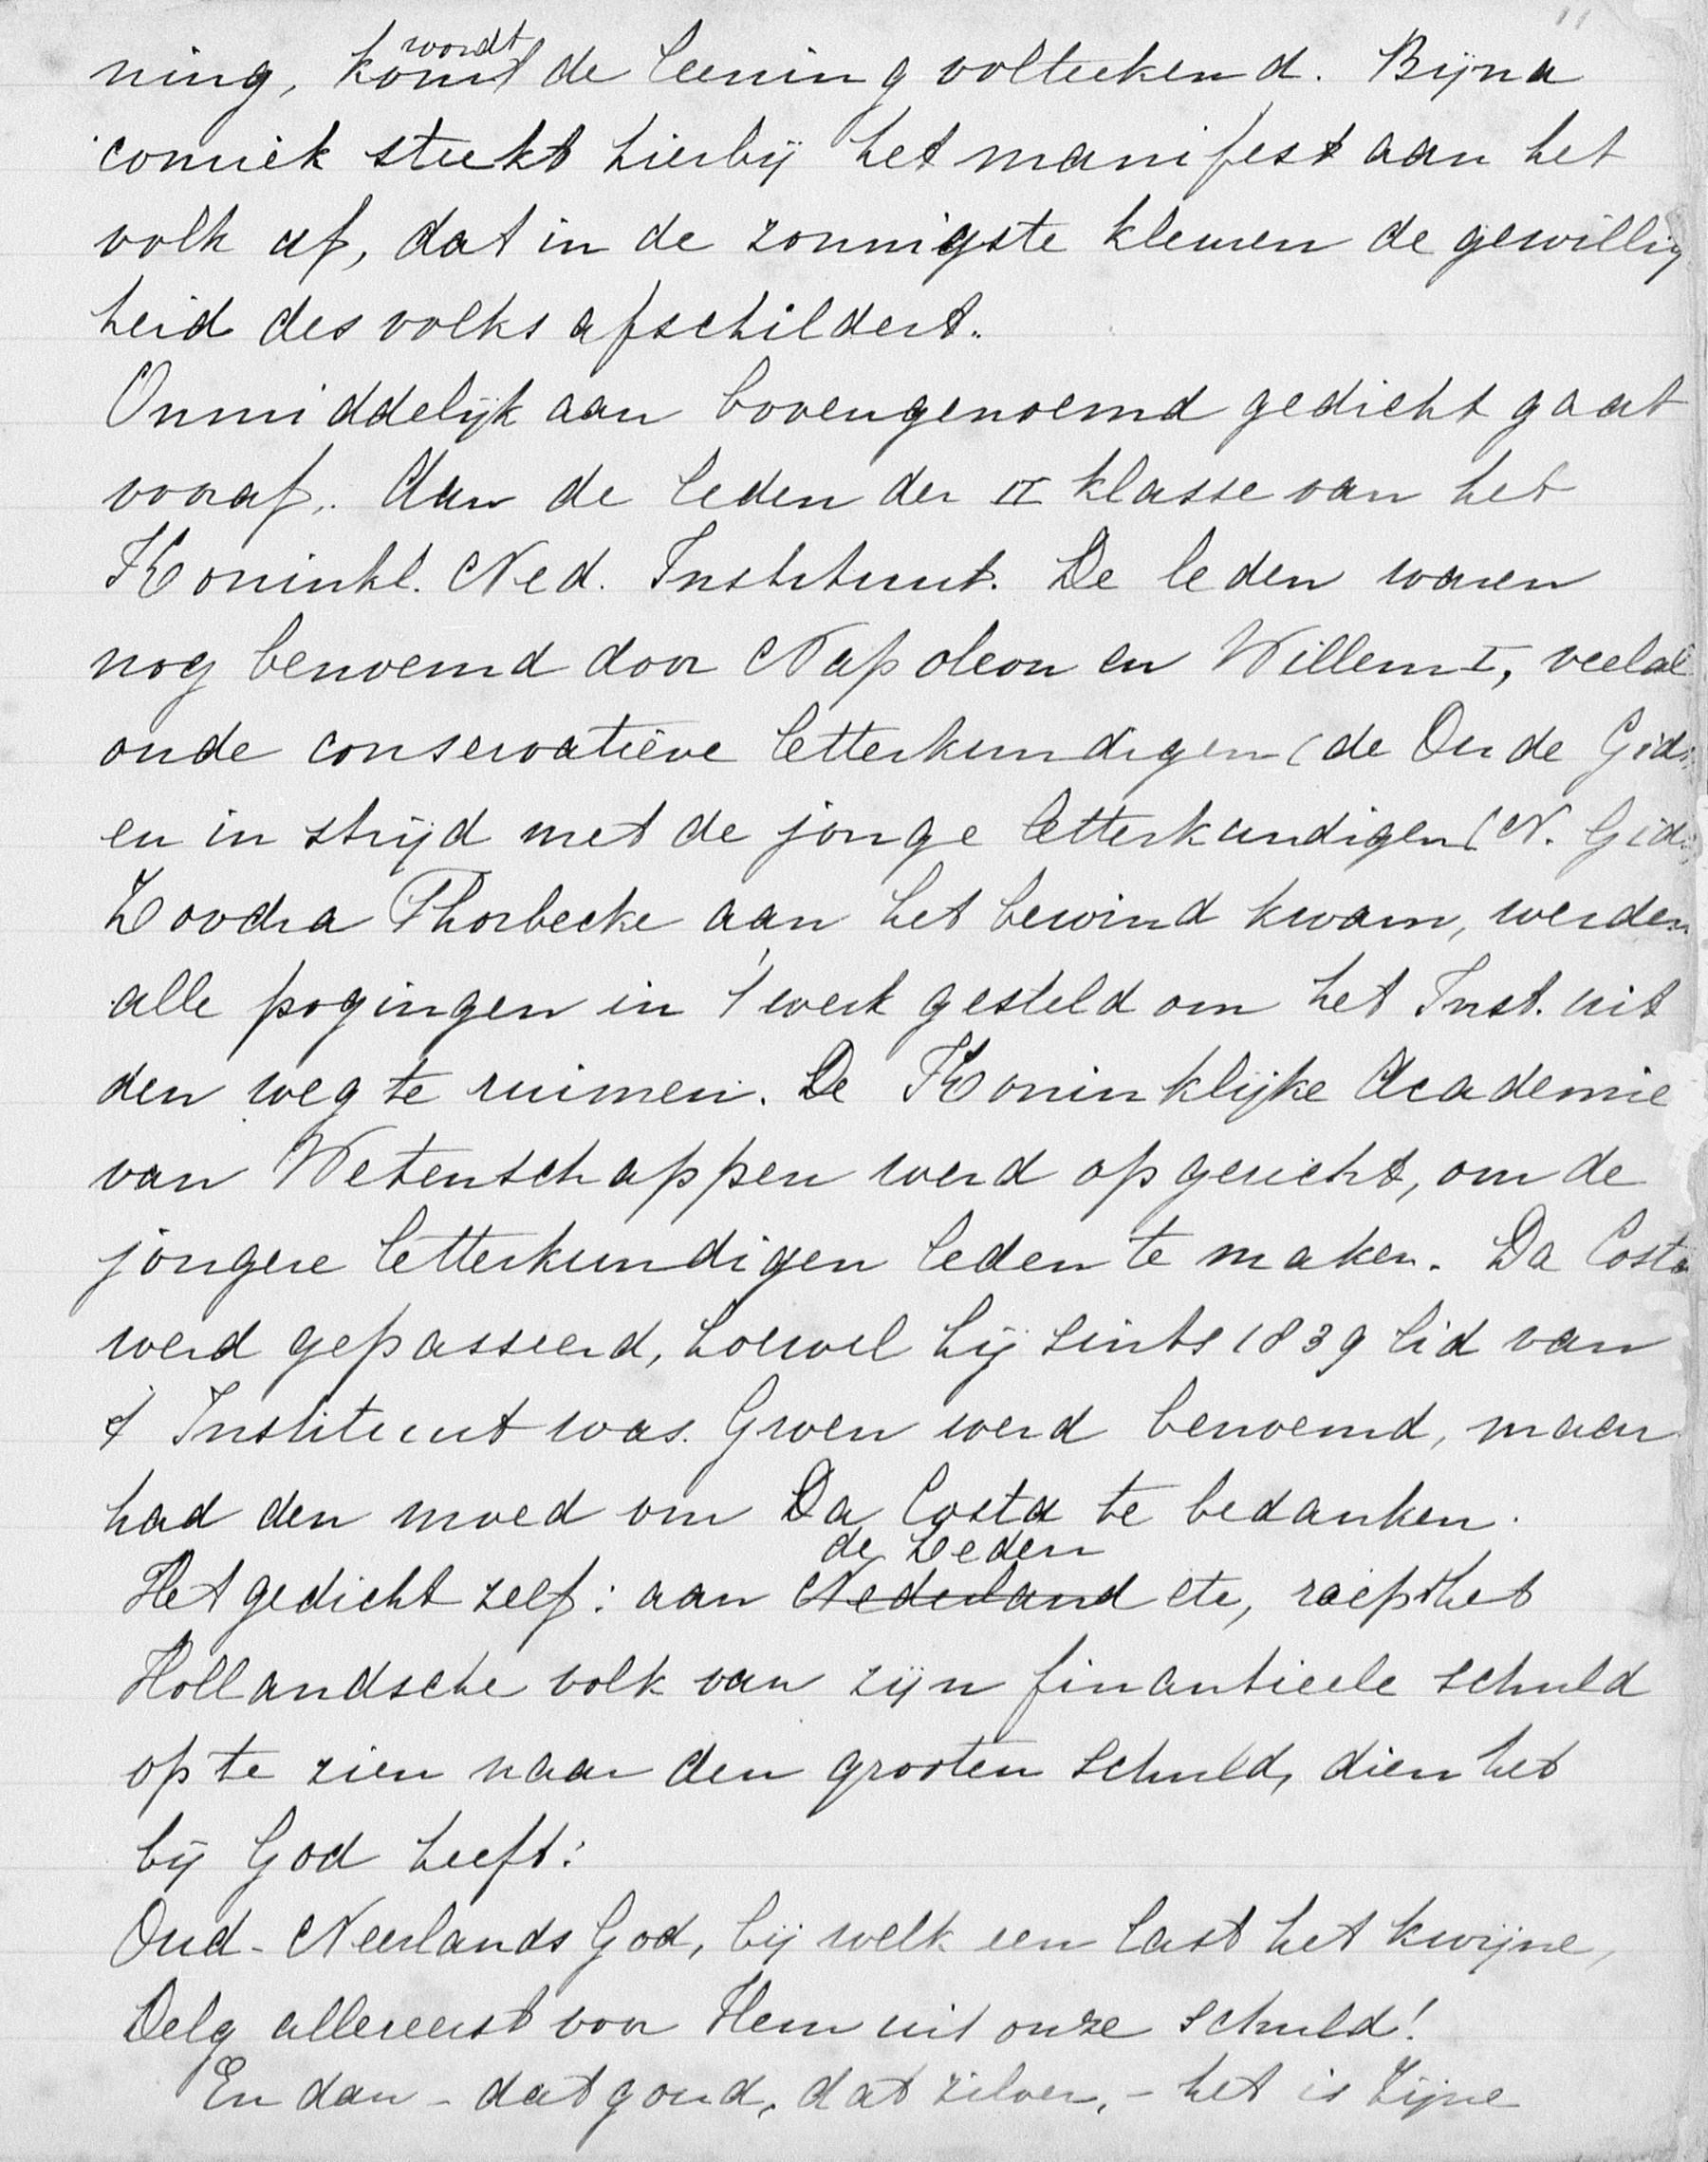 ning, komt wordt de leening volteekend. Bijna
comiek steekt hierbij het manifest aan het
volk af, dat in de zonnigste kleuren de gewillig
heid des volks afschildert.
Onmiddelijk aan bovengenoemd gedicht gaat
vooraf. Aan de leden der II klasse van het
Koninkl. Ned. Instituut. De leden waren
nog benoemd door Napoleon en Willem I, veelal
oude conservatieve letterkundigen (de Oude Gids
en in strijd met de jonge letterkundigen (N. Gids
Zoodra Thorbecke aan het bewind kwam, werden
alle pogingen in 't werk gesteld om het Inst. uit
den weg te ruimen. De Koninklijke Academie
van Wetenschappen werd opgericht, om de
jongere letterkundigen leden te maken. Da Costa
werd gepasseerd, hoewel hij sints 1839 lid van
't Instituut was. Groen werd benoemd, maar
had den moed om Da Costa te bedanken.
Het gedicht zelf: aan Nederland de Leden etc, roept het
Hollandsche volk van zijn finantieele schuld
op te zien naar den grooten schuld, dien het
bij God heeft:
Oud-Neerlands God, bij welk een last het kwijne,
Delg allereerst voor Hem uit onze schuld!
En dan - dat goud, dat zilver, - het is Zijne